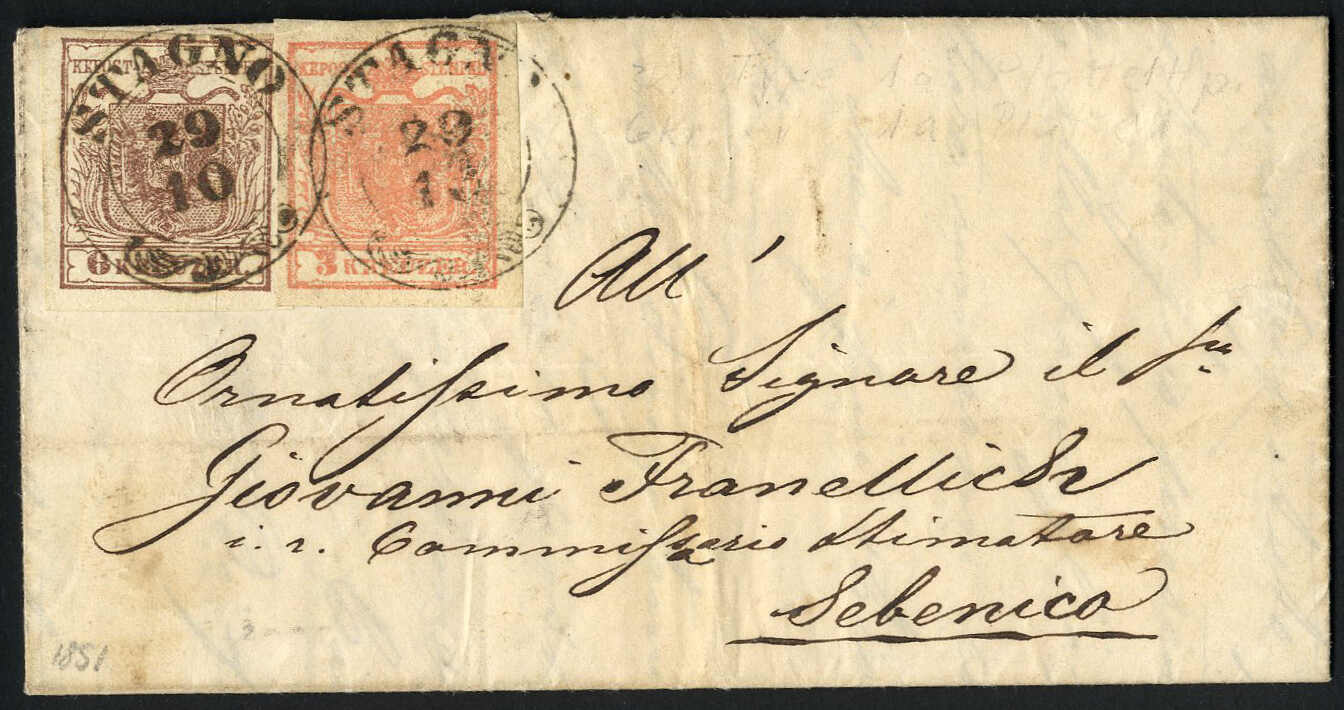 KKPOST-STEMPEL
STAGNO
29
10
6 KREUZER
KKPOST-STEMPEL
STAGN
29
10
3 KREUZER
All'
Ornatissimo Signore il
Giovanni Franellich
i. r. Commissario stimatore
Sebenico
1851